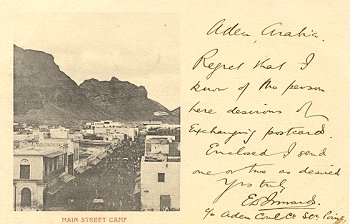 MAIN STREET CAMP
Aden, Arabia.
Regret that I
know of no person
here desirous of
Exchanging postcard
Enclosed I send
one or two as desired
Yrs truly
c/o Aden Coal Co